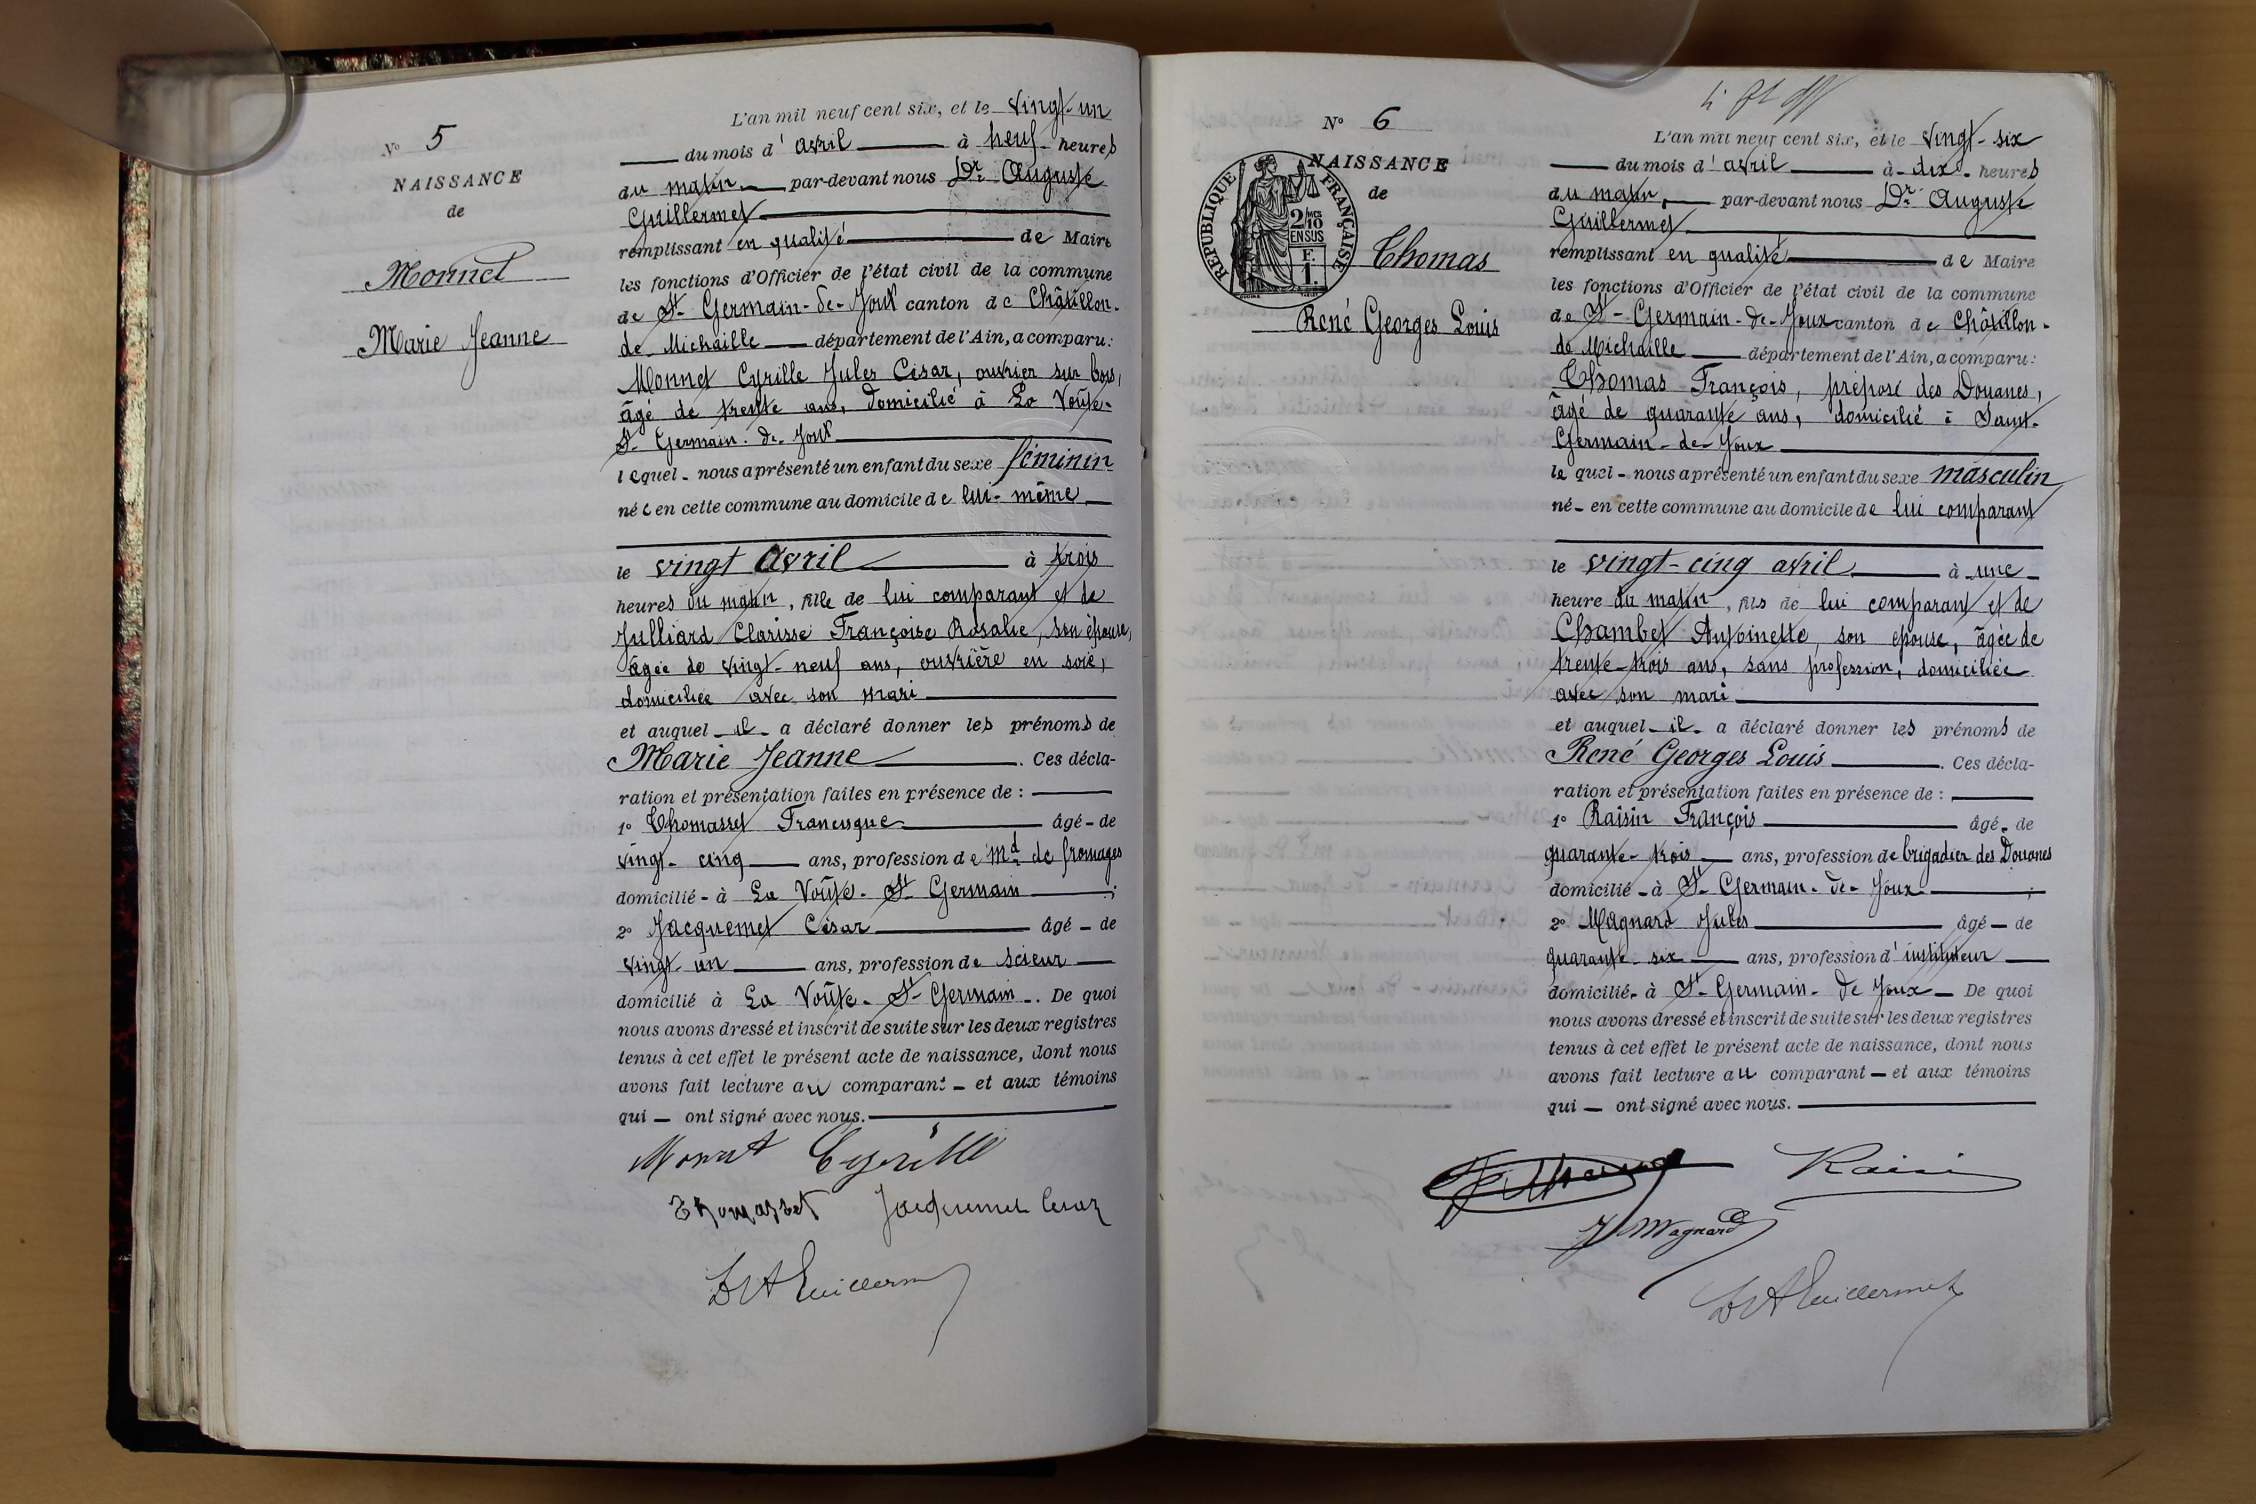 N° 5
NAISSANCE
de
Monnet
Marie Jeanne
L'an mil neuf cent six, et le vingt-un
du mois d'avril à neuf heures
du matin par-devant nous Dr Auguste
Guillermet
remplissant en qualité de Maire
les fonctions d'Officier de l'état civil de la commune
de St-Germain-de-Joux canton de Châtillon-
de-Michaille département de l'Ain, a comparu:
Monnet Cyrille Jules César, ouvrier sur bois,
âgé de trente ans, domicilié à La Voûte-
St-Germain-de-Joux
lequel nous a présenté un enfant du sexe féminin
née en cette commune au domicile de lui-même
le vingt avril à trois
heures du matin, fille de lui comparant et de
Julliard Clarisse Françoise Rosalie, son épouse,
âgée de vingt-neuf ans, ouvrière en soie,
domiciliée avec son mari
et auquel il a déclaré donner les prénoms de
Marie Jeanne. Ces décla-
ration et présentation faites en présence de :
1° Thomasset Francisque âgé de
vingt-cinq ans, profession de Md de fromages
domicilié à La Voûte-St-Germain;
2° Jacquemet César âgé de
vingt-un ans, profession de scieur
domicilié à La Voûte-St-Germain. De quoi
nous avons dressé et inscrit de suite sur les deux registres
tenus à cet effet le présent acte de naissance, dont nous
avons fait lecture au comparant et aux témoins
qui ont signé avec nous.
Monnet Cyrille
Thomasset Jacquemet Cesar
Dr A Guillermet
N° 6
NAISSANCE
de
RÉPUBLIQUE FRANÇAISE
2/10
EN SUS
F.
1.
Thomas
René Georges Louis
L'an mil neuf cent six, et le vingt-six
du mois d'avril à dix heures
du matin, par-devant nous Dr Auguste
Guillermet
remplissant en qualité de Maire
les fonctions d'Officier de l'état civil de la commune
de St-Germain-de-Joux canton de Châtillon-
de Michaille département de l'Ain, a comparu:
Thomas François, préposé des Douanes,
âgé de quarante ans, domicilié à Saint-
Germain-de-Joux
lequel nous a présenté un enfant du sexe masculin
né en cette commune au domicile de lui comparant
le vingt-cinq avril à une
heure du matin, fils de lui comparant et de
Chambet Antoinette, son épouse, âgée de
trente-trois ans, sans profession, domiciliée
avec son mari
et auquel il a déclaré donner les prénoms de
René Georges Louis. Ces décla-
ration et présentation faites en présence de :
1° Raisin François âgé de
quarante-trois ans, profession de brigadier des Douanes
domicilié à St-Germain-de-Joux;
2° Magnard Jules âgé de
quarante-six ans, profession d'instituteur
domicilié à St-Germain-de Joux. De quoi
nous avons dressé et inscrit de suite sur les deux registres
tenus à cet effet le présent acte de naissance, dont nous
avons fait lecture au comparant et aux témoins
qui ont signé avec nous.
Raisin
J Magnard
Dr A Guillermet